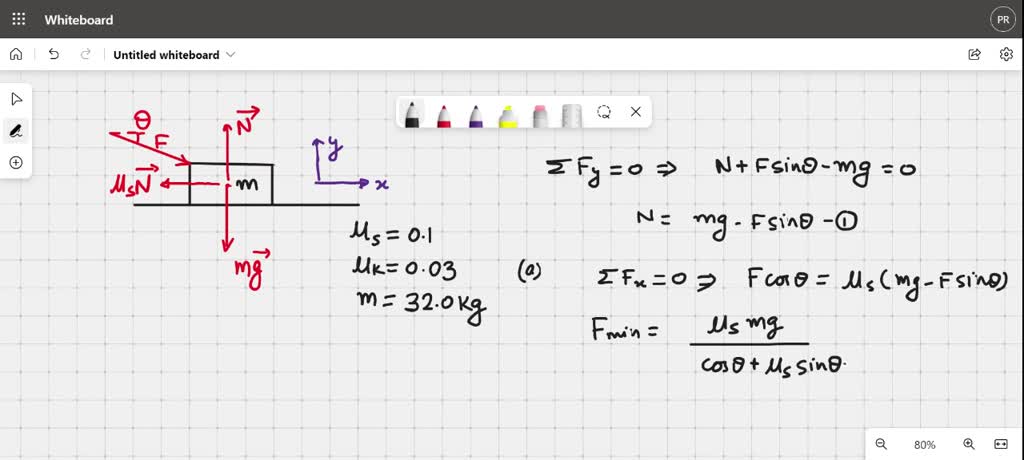 Whiteboard
PR
Untitled whiteboard
θ
F
N
μsN
m
mg
y
x
μs = 0.1
μk = 0.03
m = 32.0 kg
ΣFy = 0 ⇒ N + F sinθ - mg = 0
N = mg - F sinθ - ①
(a) ΣFx = 0 ⇒ F cosθ = μs (mg - F sinθ)
Fmin = μs mg
cosθ + μs sinθ.
80%